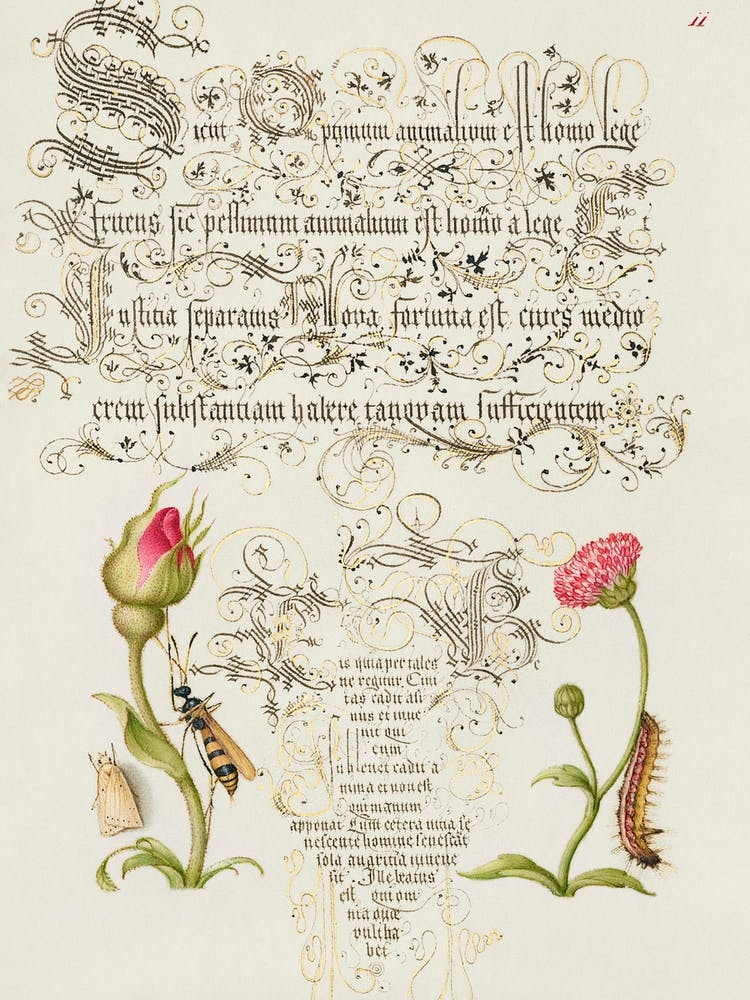 ii
Sicut Optimum animalium est homo lege
fruens sic pessimum animalium est homo a lege Et
Iustitia separatus Nova fortuna est cives medio
crem substantiam habere tanquam sufficientem
is quia per tales
ne regitur Civi
tas cadit asi
nus et inve
nit qui
eum
sublevet cadit a
nima et non est
qui manum
apponat Cum cetera vitia se
nescente homine senescāt
sola avaritia iuvene
scit Ille beatus
est qui om
nia que
vult ha
bet